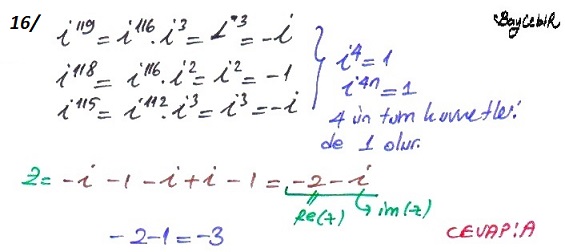 16/
BayCebiR
i¹¹⁹ = i¹¹⁶ . i³ = i³ = -i
i¹¹⁸ = i¹¹⁶ . i² = i² = -1
i¹¹⁵ = i¹¹² . i³ = i³ = -i
i⁴ = 1
i⁴ⁿ = 1
4 ün tüm kuvvetleri
de 1 olur.
Z = -i -1 -i + i -1 = -2 - i
Re(z) im(z)
-2-1 = -3
CEVAP: A